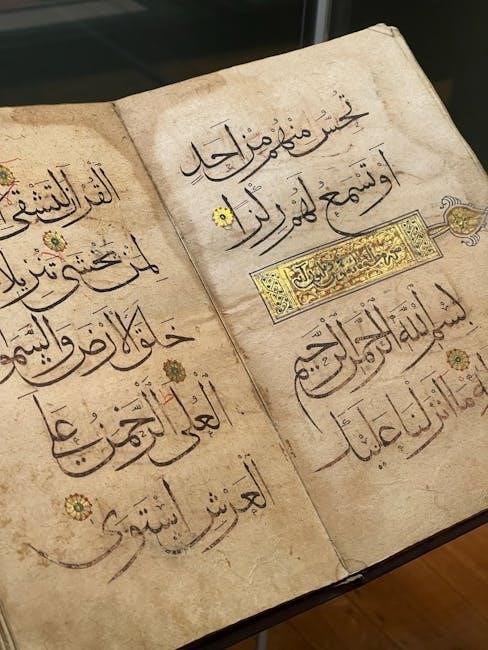 تُحِسُّ مِنْهُم مِّنْ اَحَدٍ
اَوْ تَسْمَعُ لَهُمْ رِكْزًا
بِسْمِ اللهِ الرَّحْمٰنِ الرَّحِيمِ
مَا اَنْزَلْنَا عَلَيْكَ
الْقُرْاٰنَ لِتَشْقٰى
لِمَنْ يَخْشٰى تَنْزِيلًا
خَلَقَ الْاَرْضَ
الْعُلٰى الرَّحْمٰنُ عَلَى
الْعَرْشِ اسْتَوٰى